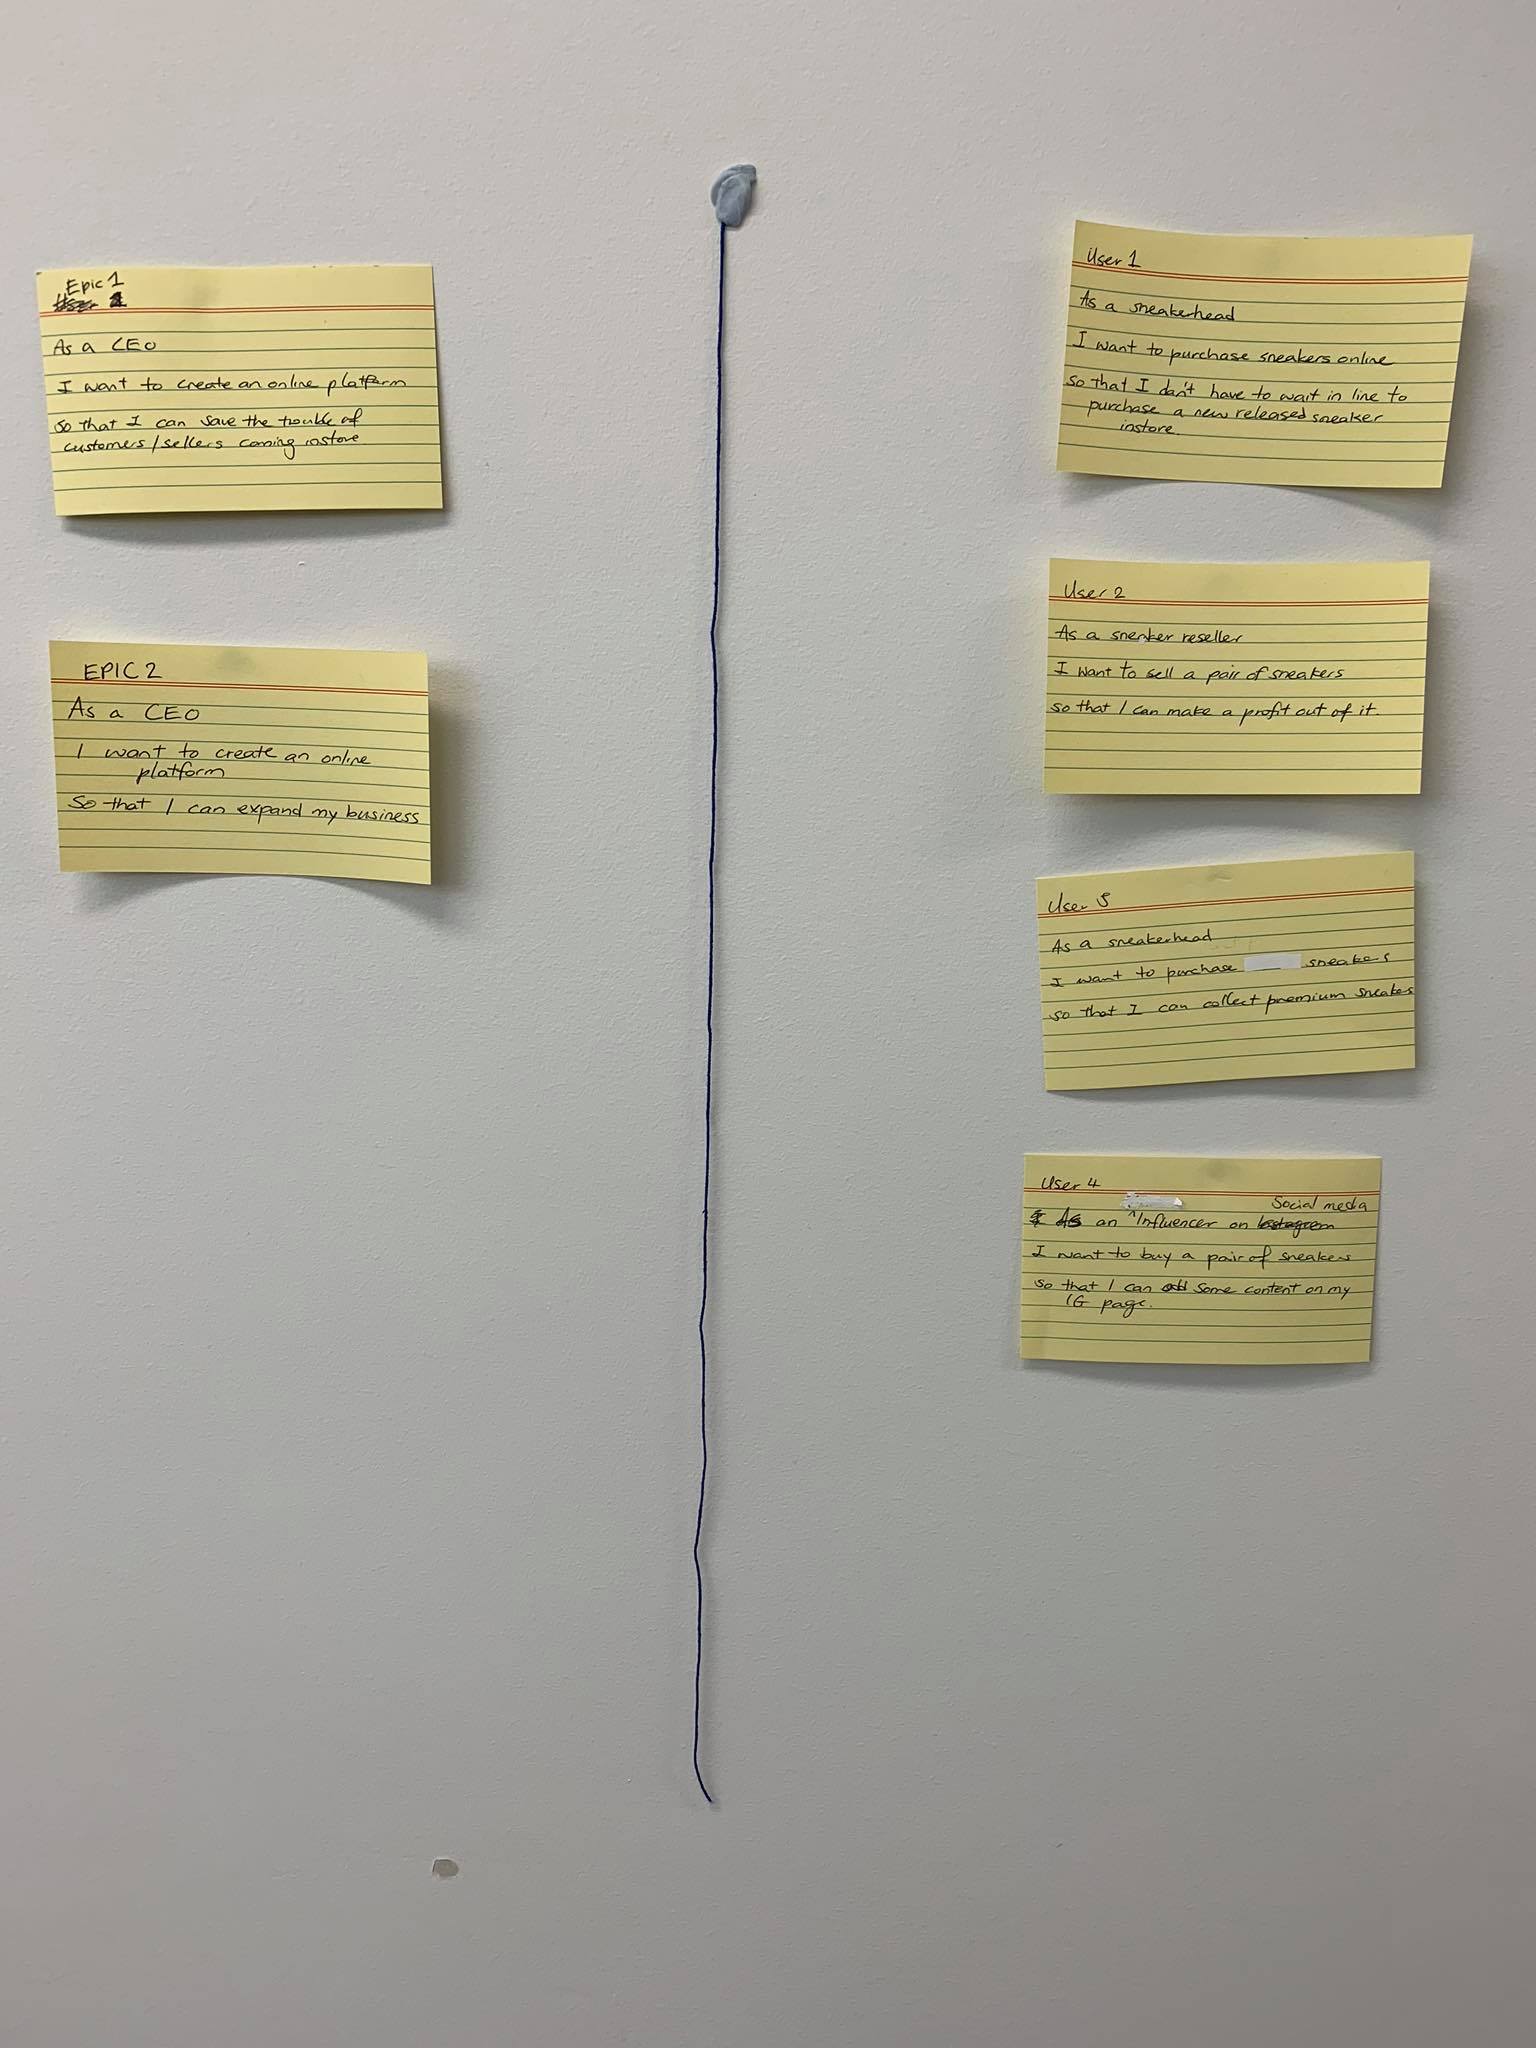 Epic 1
As a CEO
I want to create an online platform
so that I can save the trouble of
customers/sellers coming instore
EPIC 2
As a CEO
I want to create an online
platform
So that I can expand my business
User 1
As a sneakerhead
I want to purchase sneakers online
so that I don't have to wait in line to
purchase a new released sneaker
instore.
User 2
As a sneaker reseller
I want to sell a pair of sneakers
so that I can make a profit out of it.
User
As a sneakerhead
I want to purchase sneakers
so that I can collect premium sneakers
User 4
Social media
As an ^Influencer on Instagram
I want to buy a pair of sneakers
so that I can add some content on my
IG page.